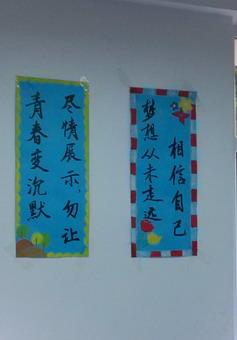 相信自己
梦想从未走远
尽情展示,勿让
青春变沉默